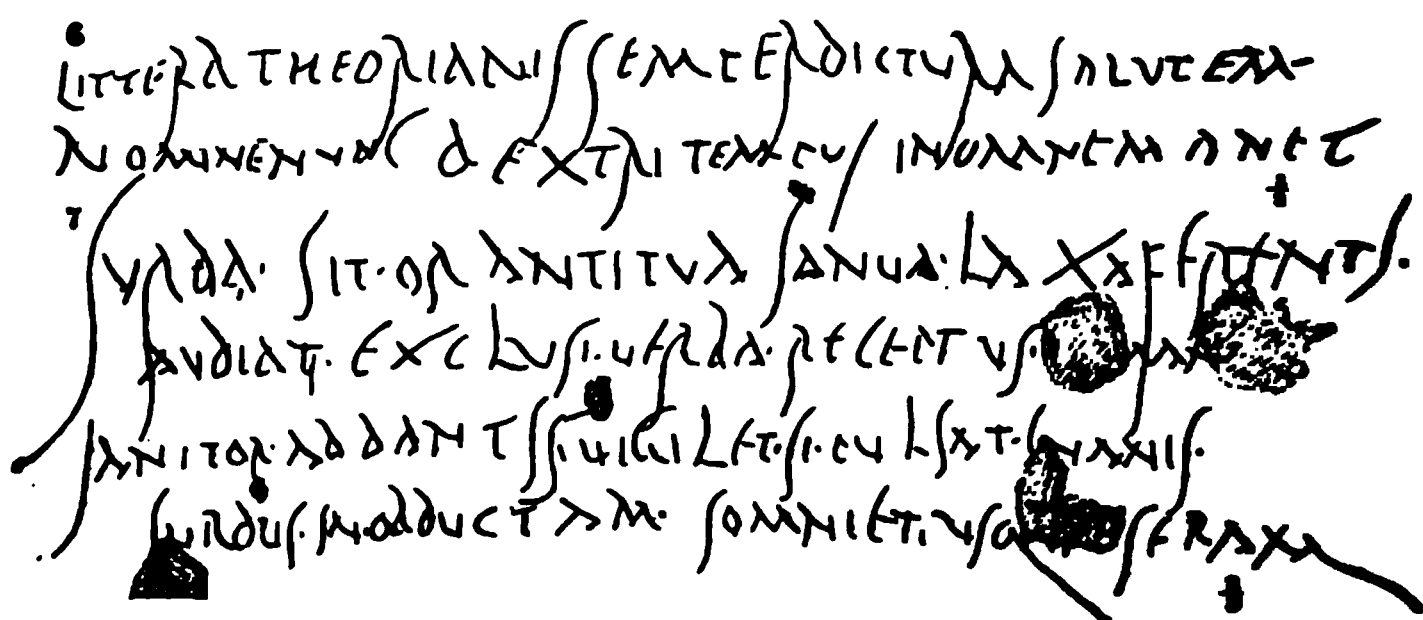 6
LITTERA THEORIANIS SEMPER DICTVRA SALVTEM
NOMINE NVNC DEXTRI TEMPVS IN OMNE MANET
7
SVRDA· SIT· ORANTI TVA IANVA· LAXA FERENTI·
AVDIAT· EXCLVSI· VERBA· RECEPTVS· AMANS
IANITOR· AD DANTIS· VIGILET· SI· PVLSAT· INANIS·
SVRDVS· IN· OBDVCTAM· SOMNIET· VSQVE SERAM